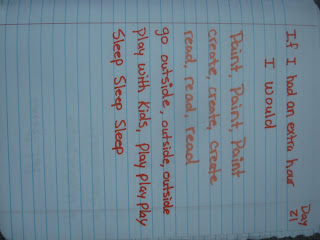 Day
21
If I had an extra hour
I would
Paint, Paint, Paint
create, create, create
read, read, read
go outside, outside, outside
play with kids, play play play
Sleep Sleep Sleep